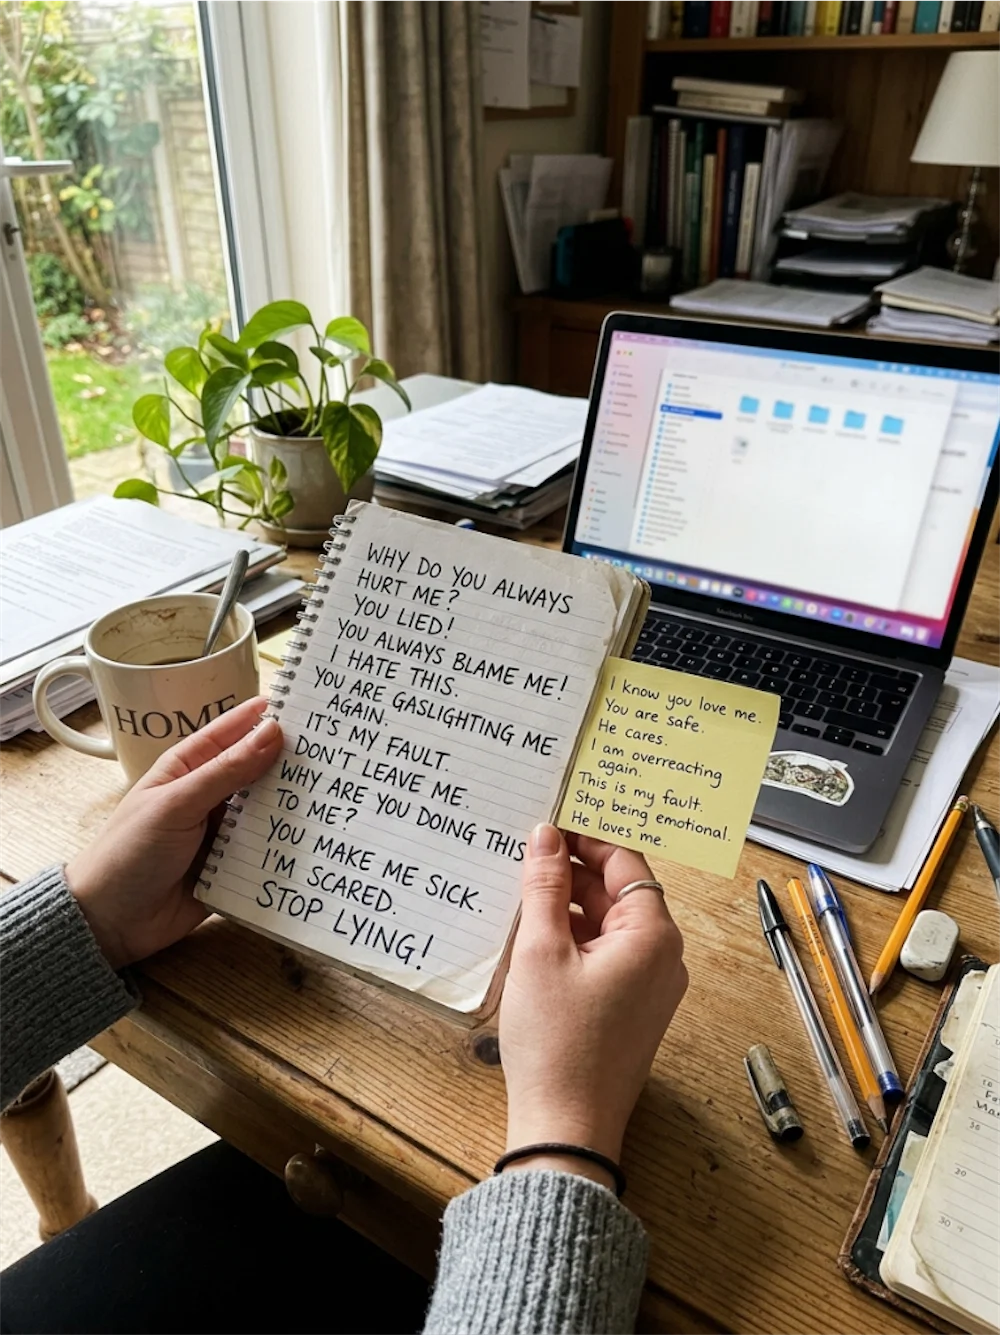 HOME
WHY DO YOU ALWAYS
HURT ME?
YOU LIED!
YOU ALWAYS BLAME ME!
I HATE THIS.
YOU ARE GASLIGHTING ME
AGAIN.
IT'S MY FAULT.
DON'T LEAVE ME.
WHY ARE YOU DOING THIS
TO ME?
YOU MAKE ME SICK.
I'M SCARED.
STOP LYING!
I know you love me.
You are safe.
He cares.
I am overreacting
again.
This is my fault.
Stop being emotional.
He loves me.
20